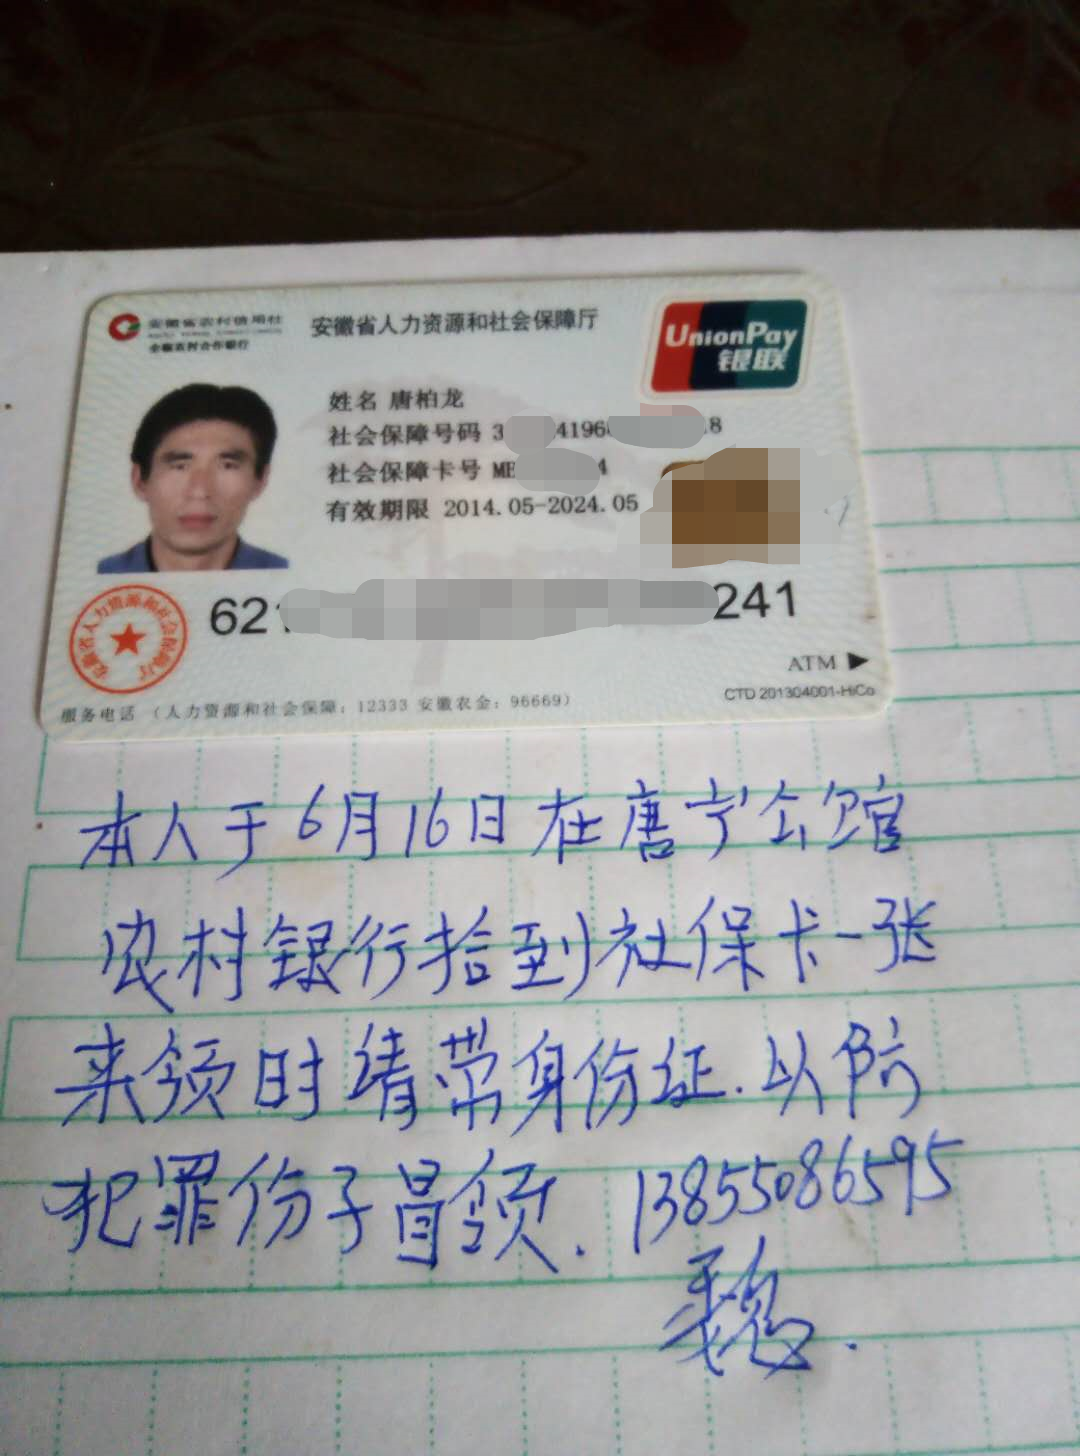 安徽省农村信用社
全椒农村合作银行
安徽省人力资源和社会保障厅
UnionPay
银联
姓名 唐柏龙
社会保障号码 3 4196 18
社会保障卡号 ME 4
有效期限 2014.05-2024.05
621 241
安徽省人力资源和社会保障厅
ATM ▶
CTD 201304001-HiCo
服务电话 (人力资源和社会保障: 12333 安徽农金: 96669)
本人于6月16日在唐宁公馆
农村银行拾到社保卡一张
来领时请带身份证.以防
犯罪份子冒领. 13855086595